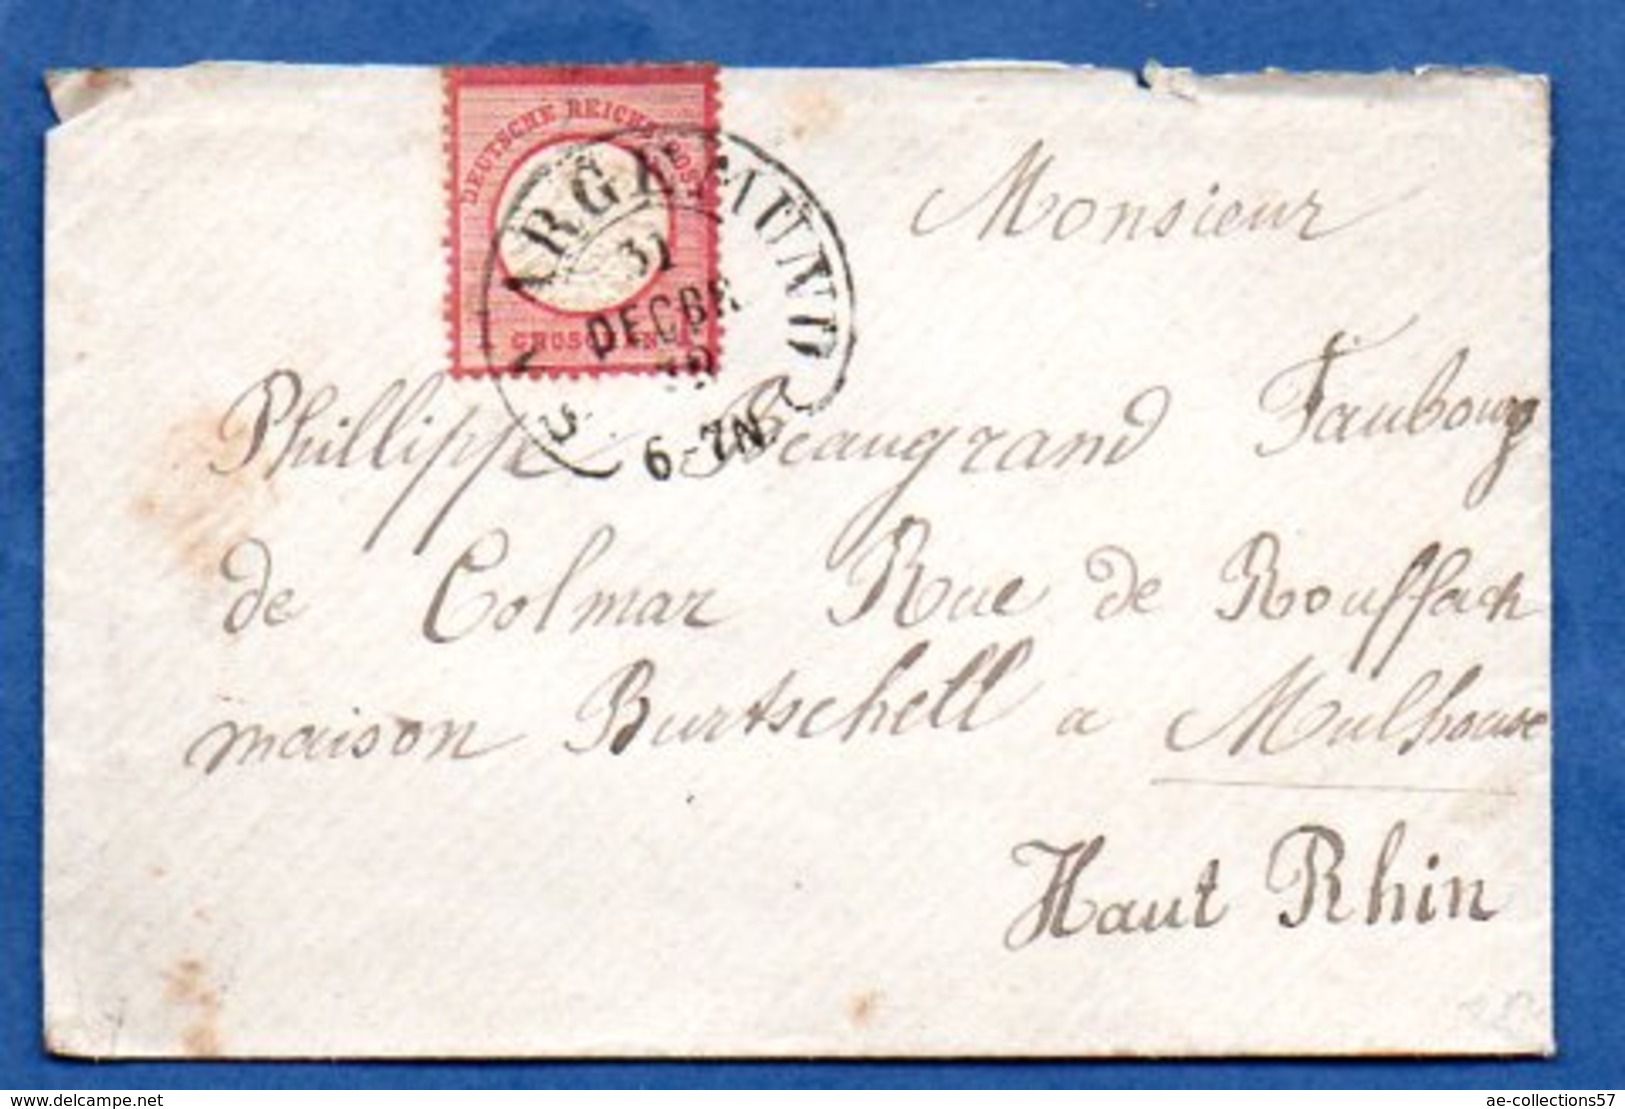 DEUTSCHE REICHS-POST
GROSCHEN
SAARGEMUND
31
DECBR
6-7N.
Monsieur
Phillippe Beaugrand Faubourg
de Colmar Rue de Rouffach
maison Burtschell a Mulhouse
Haut Rhin
www.delcampe.net
ae-collections57